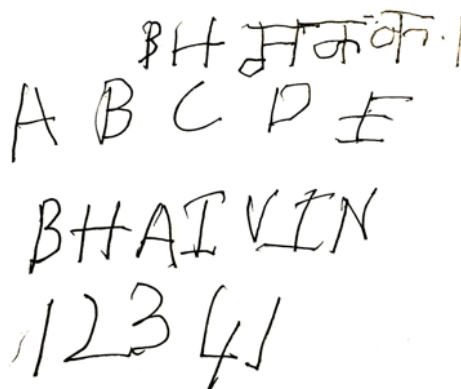 BH मनक
A B C D E
BHAIVIN
12341